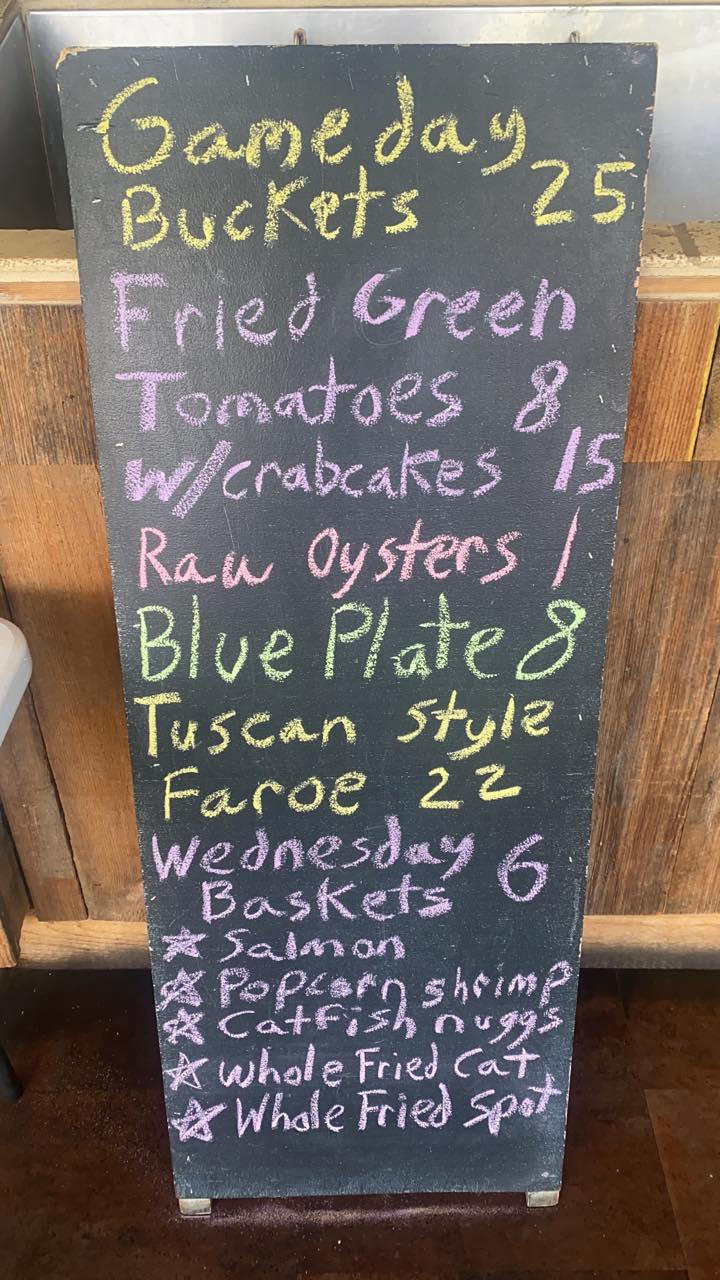 Gameday
Buckets 25
Fried Green
Tomatoes 8
w/crabcakes 15
Raw Oysters 1
Blue Plate 8
Tuscan style
Faroe 22
Wednesday 6
Baskets
☆ Salmon
☆ Popcorn shrimp
☆ Catfish nuggs
☆ whole Fried Cat
☆ Whole Fried Spot